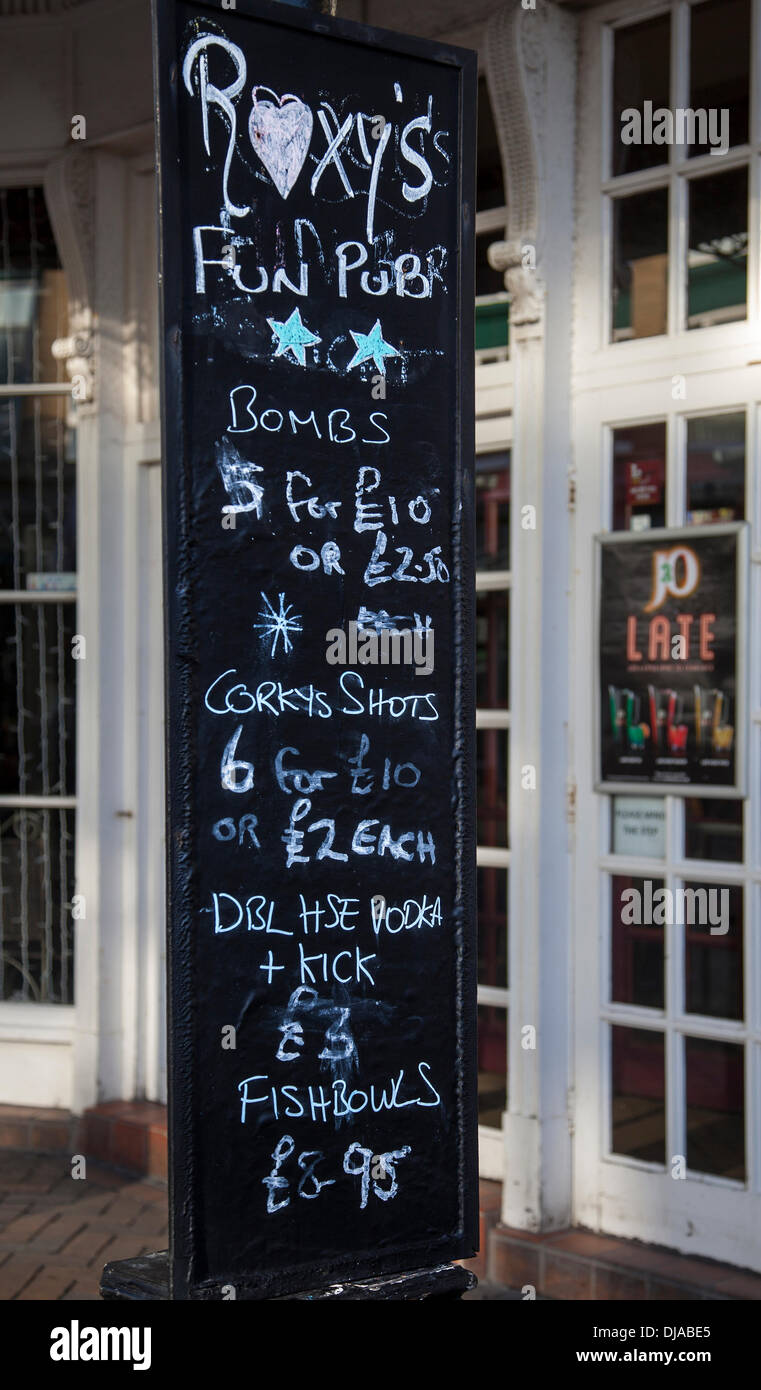 Roxy's
FUN PUB
BOMBS
5 for £10
OR £2.50
EACH
CORKYS SHOTS
6 for £10
OR £2 EACH
DBL HSE VODKA
+ KICK
£3
FISHBOWLS
£8 95
J2O
LATE
alamy
alamy
alamy
Image ID: DJABE5
www.alamy.com